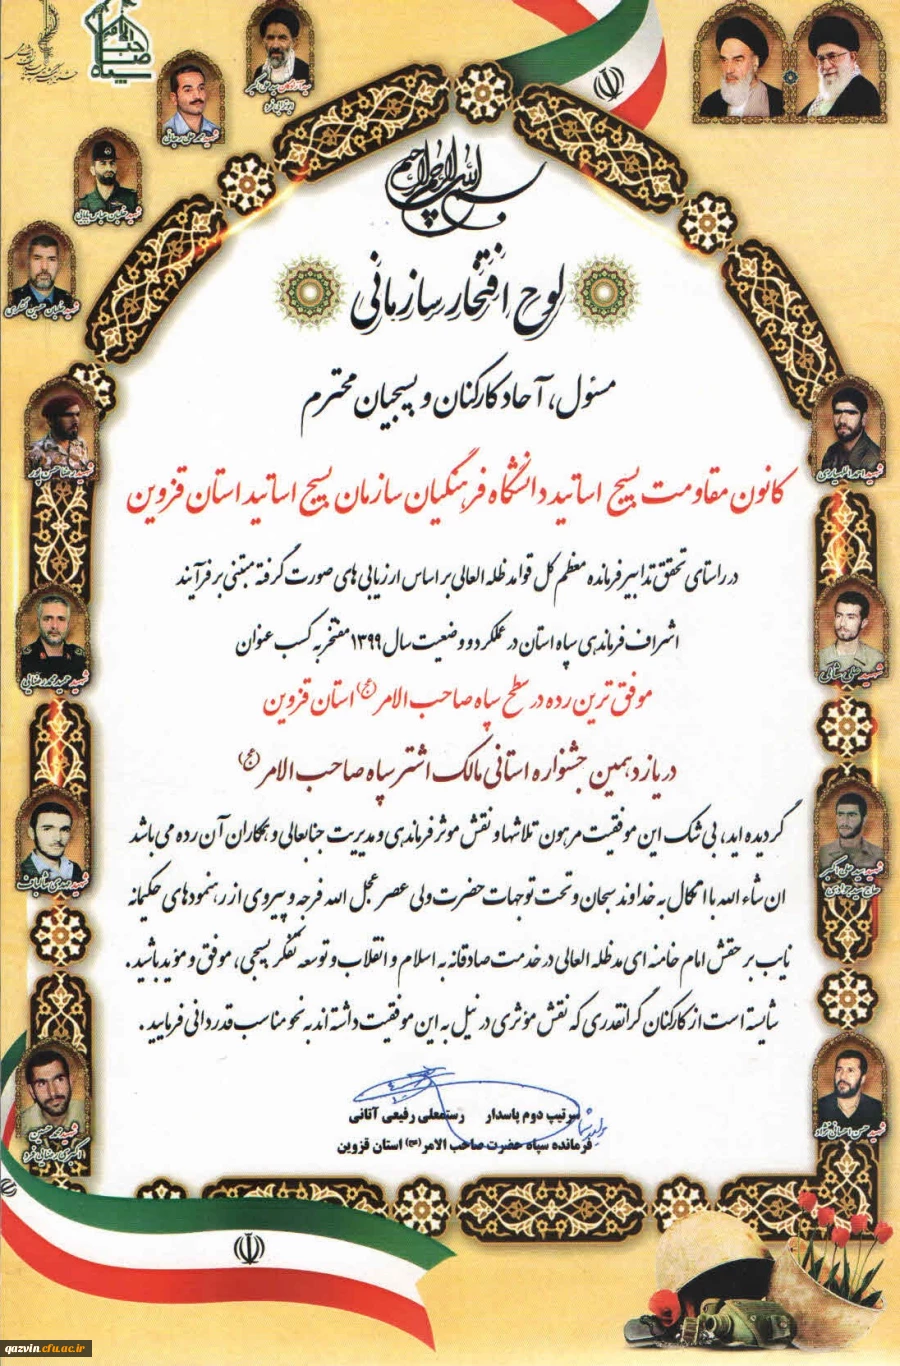 بسم الله الرحمن الرحیم
لوح افتخار سازمانی
مسئول، آحاد کارکنان و بسیجیان محترم
کانون مقاومت بسیج اساتید دانشگاه فرهنگیان سازمان بسیج اساتید استان قزوین
در راستای تحقق تدابیر فرمانده معظم کل قوا مدظله العالی بر اساس ارزیابی های صورت گرفته مبتنی بر فرآیند
اشراف فرماندهی سپاه استان در عملکرد و وضعیت سال ۱۳۹۹ مفتخر به کسب عنوان
موفق ترین رده در سطح سپاه صاحب الامر (عج) استان قزوین
در یازدهمین جشنواره استانی مالک اشتر سپاه صاحب الامر (عج)
گردیده اید، بی شک این موفقیت مرهون تلاشها و نقش موثر فرماندهی و مدیریت جنابعالی و همکاران آن رده می باشد
ان شاء الله با اتکال به خداوند سبحان و تحت توجهات حضرت ولی عصر عجل الله فرجه و پیروی از رهنمودهای حکیمانه
نایب بر حقش امام خامنه ای مدظله العالی در خدمت صادقانه به اسلام و انقلاب و توسعه تفکر بسیجی، موفق و مؤید باشید.
شایسته است از کارکنان گرانقدری که نقش مؤثری در نیل به این موفقیت داشته اند به نحو مناسب قدردانی فرمایید.
سرتیپ دوم پاسدار رستمعلی رفیعی آتانی
فرمانده سپاه حضرت صاحب الامر (عج) استان قزوین
شهید محمد علی رجائی
شهید خلبان عباس بابایی
شهید خلبان حسین لشگری
شهید رضا حسن پور
شهید حمید محمد رضایی
شهید مهدی شالباف
شهید احمد اللهیاری
شهید حسن احسانی نژاد
qazvin.cfu.ac.ir